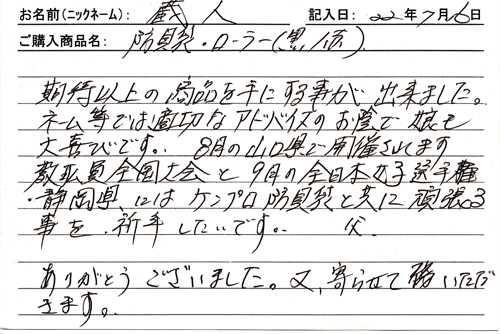 お名前(ニックネーム): 蔵人 記入日: 22年7月6日
ご購入商品名: 防具袋・ローラー(黒/
期待以上の商品を手にする事が出来ました。
ネーム等では適切なアドバイスのお陰で娘も
大喜びです。8月の山口県で開催されます
教職員全国大会と9月の全日本女子選手権
・静岡県にはケンプロ防具袋と共に頑張る
事を祈年したいです。 父.
ありがとうございました。又、寄らせていただ
きます。